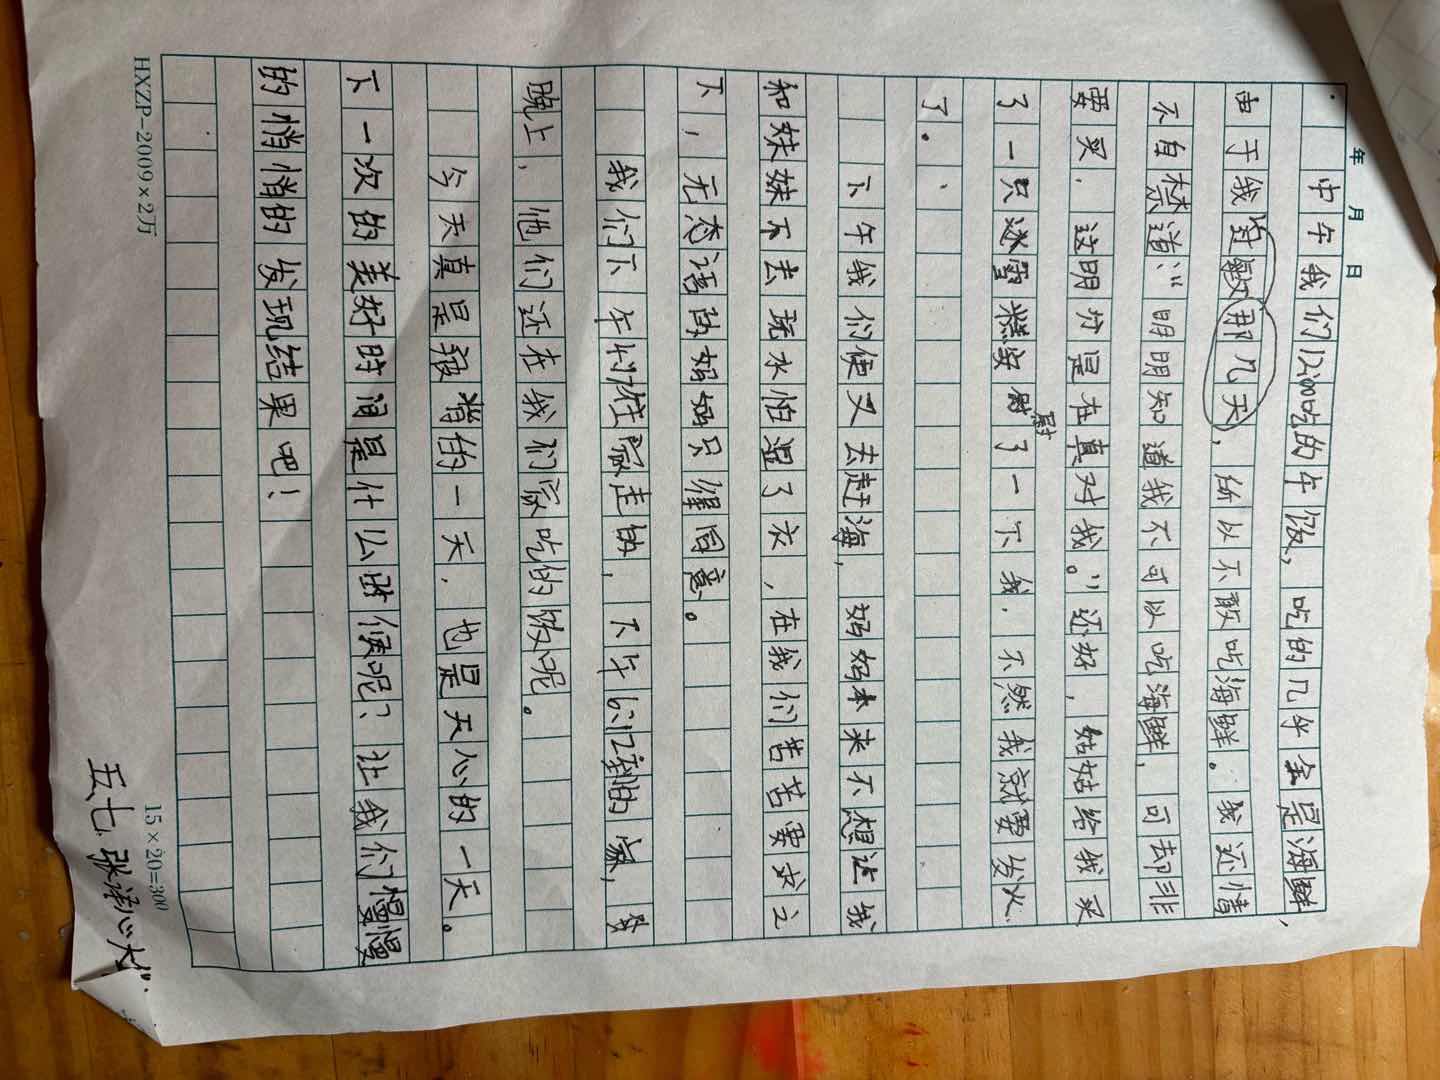 年 月 日
中午我们12:00吃的午饭，吃的几乎全是海鲜，
由于我过敏那几天，所以不敢吃海鲜。我还情
不自禁道:“明明知道我不可以吃海鲜，可却非
要买，这明分是在真对我。”还好，姑姑给我买
了一只冰雪糕安慰了一下我，不然我就要发火
了。
下午我们便又去赶海，妈妈本来不想让我
和妹妹不去玩水怕湿了衣，在我们苦苦要求之
下，无态语的妈妈只得同意。
我们下午4:往家走的，下午6:到的家，
晚上，他们还在我们家吃的饭呢。
今天真是的一天，也是天心的一天。
下一次的美好时间是什么时候呢？让我们慢慢
的悄悄的发现结果吧！
HXZP-2009×2万
15×20=300
五七 张